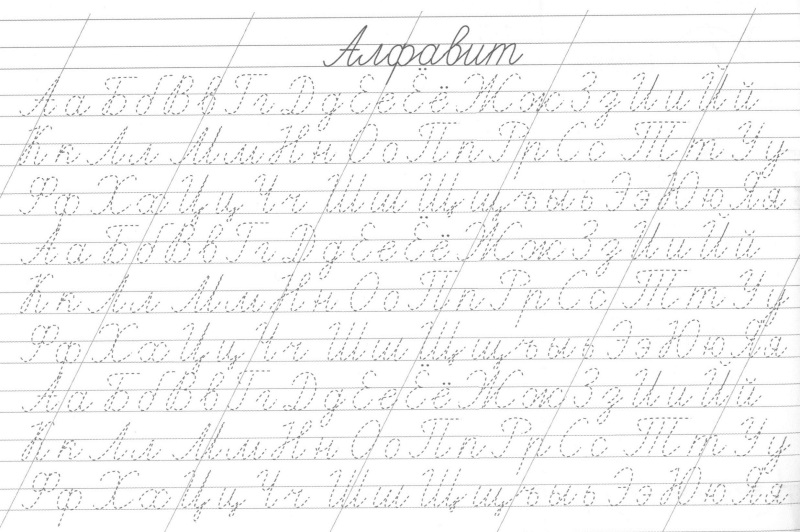 Алфавит
Аа Бб Вв Гг Дд Ее Ёё Жж Зз Ии Йй
Кк Лл Мм Нн Оо Пп Рр Сс Тт Уу
Фф Хх Цц Чч Шш Щщ ъ ы ь Ээ Юю Яя
Аа Бб Вв Гг Дд Ее Ёё Жж Зз Ии Йй
Кк Лл Мм Нн Оо Пп Рр Сс Тт Уу
Фф Хх Цц Чч Шш Щщ ъ ы ь Ээ Юю Яя
Аа Бб Вв Гг Дд Ее Ёё Жж Зз Ии Йй
Кк Лл Мм Нн Оо Пп Рр Сс Тт Уу
Фф Хх Цц Чч Шш Щщ ъ ы ь Ээ Юю Яя